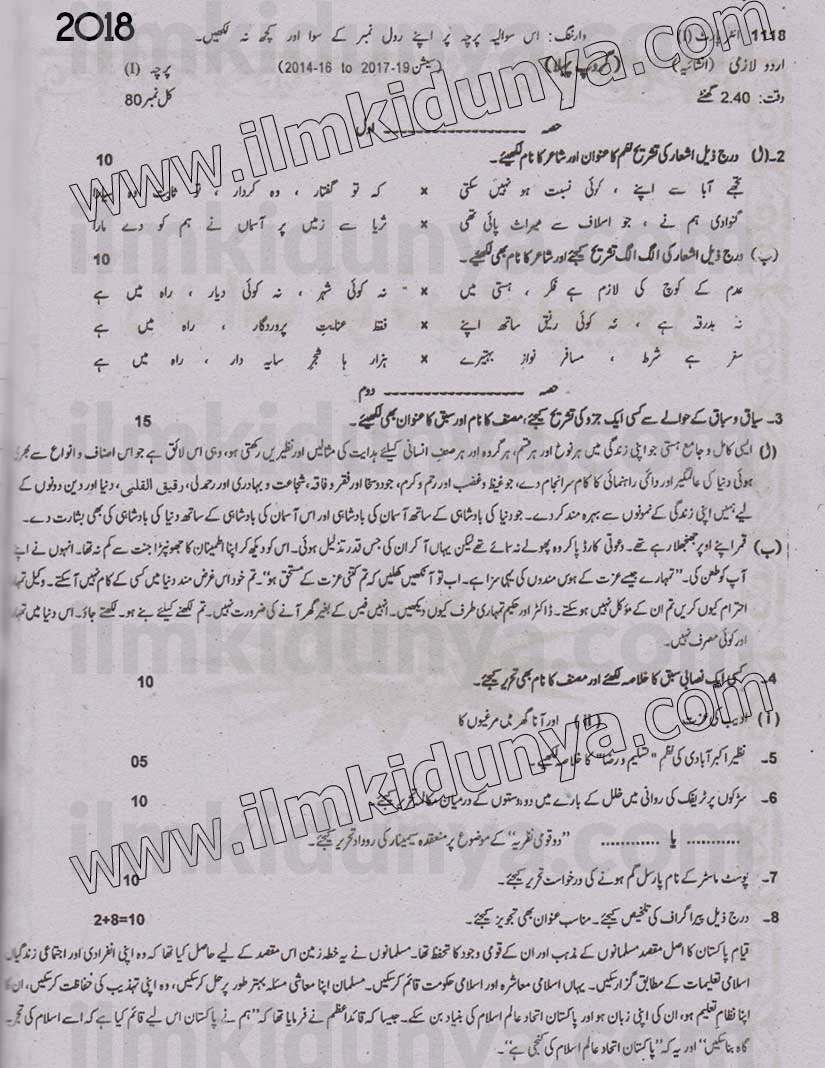 2018
1118 انٹر پارٹ (I) وارننگ: اس سوالیہ پرچہ پر اپنے رول نمبر کے سوا اور کچھ نہ لکھیں۔
اردو لازمی (انشائیہ) (گروپ پہلا) (سیشن 19-2017 to 16-2014) پرچہ (I)
وقت: 2.40 گھنٹے کل نمبر 80
حصہ اول
2۔ (ا) درج ذیل اشعار کی تشریح نظم کا عنوان اور شاعر کا نام لکھیئے۔ 10
تجھے آبا سے اپنے ، کوئی نسبت ہو نہیں سکتی × کہ تو گفتار ، وہ کردار ، تو ثابت وہ
گنوادی ہم نے ، جو اسلاف سے میراث پائی تھی × ثریا سے زمیں پر آسماں نے ہم کو دے مارا
(ب) درج ذیل اشعار کی الگ الگ تشریح کیجئے اور شاعر کا نام بھی لکھیئے۔ 10
عدم کے کوچ کی لازم ہے فکر ، ہستی میں × نہ کوئی شہر ، نہ کوئی دیار ، راہ میں ہے
نہ بدرقہ ہے ، نہ کوئی رفیق ساتھ اپنے × فقط عنایت پروردگار ، راہ میں ہے
سفر ہے شرط ، مسافر نواز بہتیرے × ہزار ہا شجرِ سایہ دار ، راہ میں ہے
حصہ دوم
3۔ سیاق و سباق کے حوالے سے کسی ایک جزو کی تشریح کیجئے، مصنف کا نام اور سبق کا عنوان بھی لکھیئے۔ 15
(ا) ایسی کامل و جامع ہستی جو اپنی زندگی میں ہر نوع اور ہر قسم، ہر گروہ اور ہر صنفِ انسانی کیلئے ہدایت کی مثالیں اور نظیریں رکھتی ہو، وہی اس لائق ہے جو اس اصناف و انواع سے بھری
ہوئی دنیا کی عالمگیر اور دائمی راہنمائی کا کام سرانجام دے، جو غیظ و غضب اور رحم و کرم، جود و سخا اور فقر و فاقہ، شجاعت و بہادری اور رحمدلی، رقیق القلبی، دنیا اور دین دونوں کے
لیے ہمیں اپنی زندگی کے نمونوں سے بہرہ مند کر دے۔ جو دنیا کی بادشاہی کے ساتھ آسمان کی بادشاہی اور اس آسمان کی بادشاہی کے ساتھ دنیا کی بادشاہی کی بھی بشارت دے۔
(ب) قمر اپنے اوپر جھنجھلا رہے تھے۔ دعوتی کارڈ پا کر وہ پھولے نہ سمائے تھے لیکن یہاں آ کر ان کی جس قدر تذلیل ہوئی۔ اس کو دیکھ کر اپنا اطمینان کا جھونپڑا جنت سے کم نہ تھا۔ انہوں نے اپنے
آپ کو طعن کی۔ "تمہارے جیسے عزت کے ہوس مندوں کی یہی سزا ہے۔ اب تو آنکھیں کھلیں کہ تم کتنی عزت کے مستحق ہو"۔ تم خود اس غرض مند دنیا میں کسی کے کام نہیں آ سکتے۔ وکیل تمہارا
احترام کیوں کریں تم ان کے مؤکل نہیں ہو سکتے۔ ڈاکٹر اور حکیم تمہاری طرف کیوں دیکھیں۔ انہیں فیس کے بغیر گھر آنے کی ضرورت نہیں۔ تم لکھنے کیلئے بنے ہو۔ لکھتے جاؤ۔ اس دنیا میں تمہارا
اور کوئی مصرف نہیں۔
4۔ کسی ایک نصابی سبق کا خلاصہ لکھئے اور مصنف کا نام بھی تحریر کیجئے۔ 10
(i) ادیب کی عزت (ii) اور آنا گھر میں مرغیوں کا
5۔ نظیر اکبر آبادی کی نظم "تسلیم و رضا" کا خلاصہ لکھیئے۔ 05
6۔ سڑکوں پر ٹریفک کی روانی میں خلل کے بارے میں دو دوستوں کے درمیان مکالمہ تحریر کیجئے۔ 10
........... یا ............ "دو قومی نظریہ" کے موضوع پر منعقدہ سیمینار کی روداد تحریر کیجئے۔
7۔ پوسٹ ماسٹر کے نام پارسل گم ہونے کی درخواست تحریر کیجئے۔ 10
8۔ درج ذیل پیراگراف کی تلخیص کیجئے۔ مناسب عنوان بھی تجویز کیجئے۔ 2+8=10
قیام پاکستان کا اصل مقصد مسلمانوں کے مذہب اور ان کے قومی وجود کا تحفظ تھا۔ مسلمانوں نے یہ خطہ زمین اس مقصد کے لیے حاصل کیا تھا کہ وہ اپنی انفرادی اور اجتماعی زندگیاں
اسلامی تعلیمات کے مطابق گزار سکیں۔ یہاں اسلامی معاشرہ اور اسلامی حکومت قائم کر سکیں۔ مسلمان اپنا معاشی مسئلہ بہتر طور پر حل کر سکیں، وہ اپنی تہذیب کی حفاظت کر سکیں، ان کا
اپنا نظام تعلیم ہو، ان کی اپنی زبان ہو اور پاکستان اتحاد عالم اسلام کی بنیاد بن سکے۔ جیسا کہ قائد اعظم نے فرمایا تھا کہ "ہم نے پاکستان اس لیے قائم کیا ہے کہ اسے اسلام کی تجربہ
گاہ بنا سکیں" اور یہ کہ "پاکستان اتحاد عالم اسلام کی کنجی ہے"۔
www.ilmkidunya.com
www.ilmkidunya.com